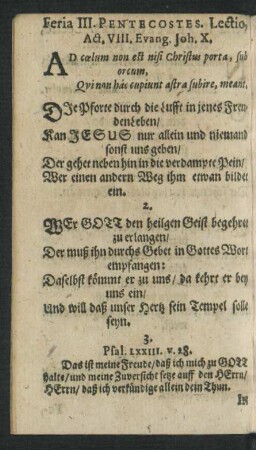 Feria III. PENTECOSTES. Lectio,
Act. VIII. Evang. Joh. X.
AD cœlum non est nisi Christus porta, sub
orcum,
Qvi non hâc cupiunt astra subire, meant.
DIe Pforte durch die Lufft in jenes Freu-
denLeben/
Kan JESUS nur allein und niemand
sonst uns geben/
Der gehet neben hin in die verdampte Pein/
Wer einen andern Weg ihm etwan bildet
ein.
2.
WEr GOTT den heilgen Geist begehrt
zu erlangen/
Der muß ihn durchs Gebet in Gottes Wort
empfangen:
Daselbst kömmt er zu uns/ da kehrt er bey
uns ein/
Und will daß unser Hertz sein Tempel solle
seyn.
3.
Psal. LXXIII. v. 28.
Das ist meine Freude/ daß ich mich zu GOTT
halte/ und meine Zuversicht setze auff den HErrn/
HErrn/ daß ich verkündige allein dein Thun.